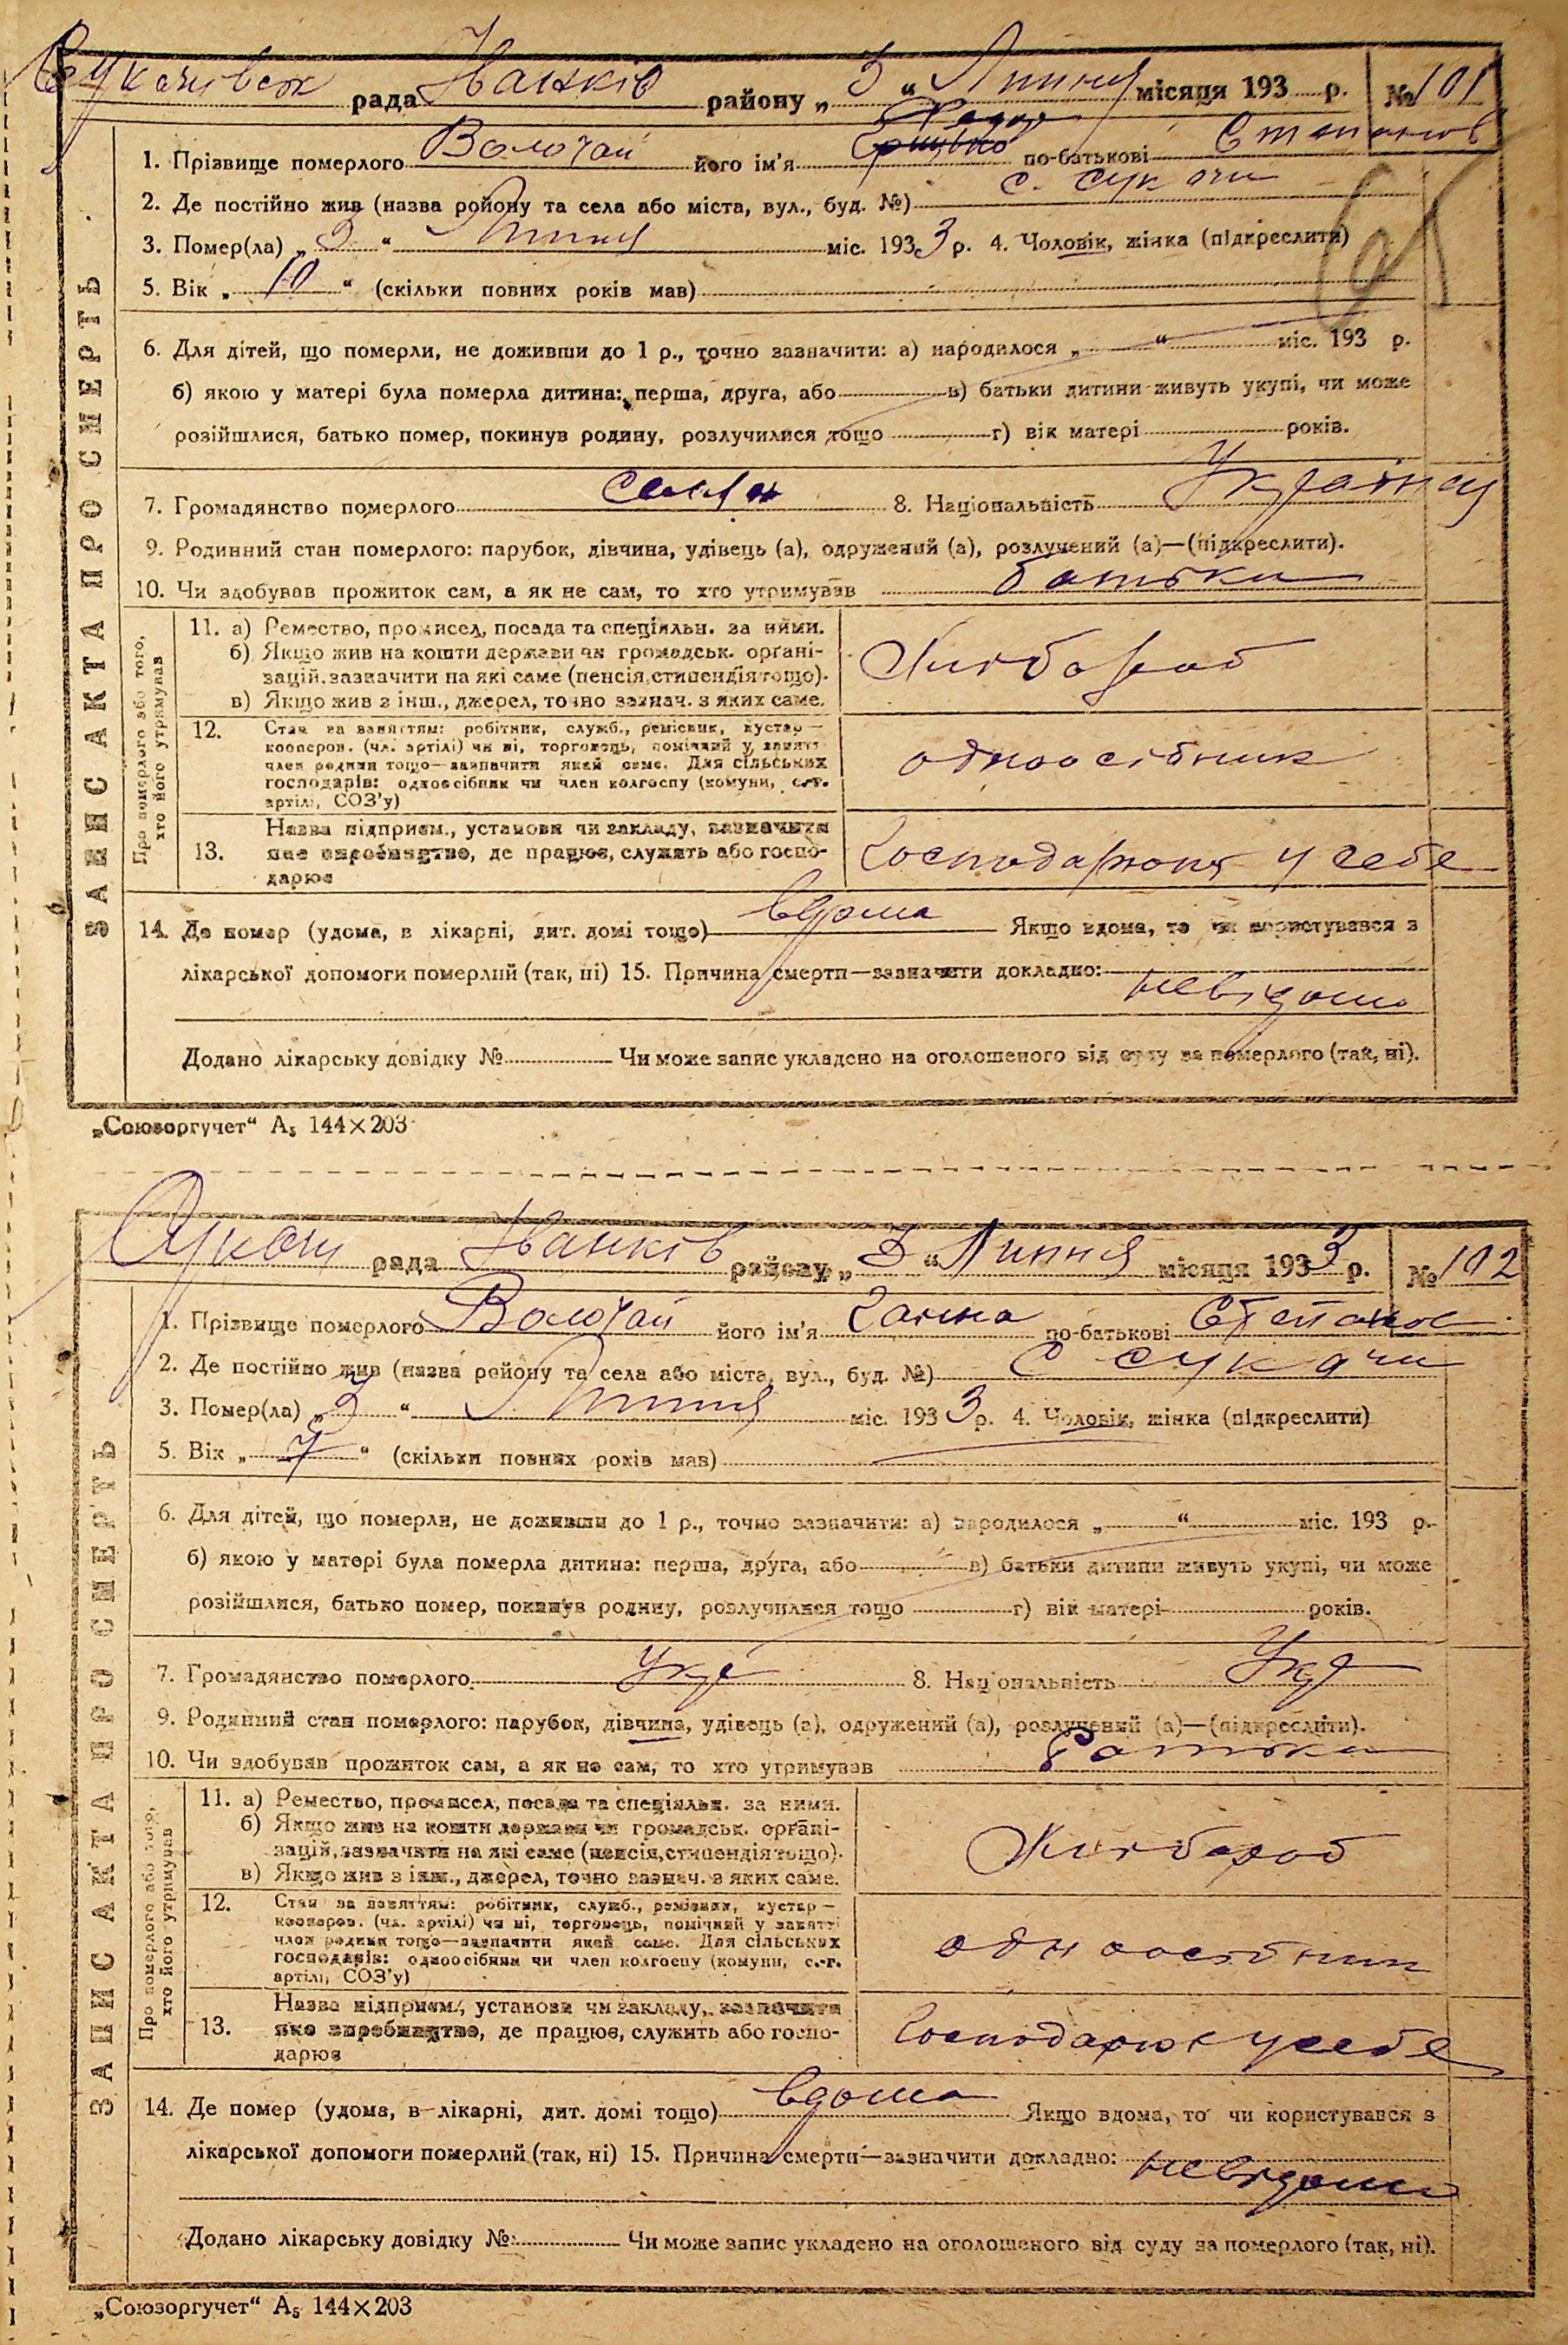 рада Іванків району „ 3 “ Липня місяця 193 р. № 101
1. Прізвище померлого Волочай його ім'я по-батькові Степанов
2. Де постійно жив (назва району та села або міста, вул., буд. №) с. Сукачи
3. Помер(ла) „ 3 “ Липня міс. 193 3 р. 4. Чоловік, жінка (підкреслити)
5. Вік „ 10 “ (скільки повних років мав)
6. Для дітей, що померли, не доживши до 1 р., точно зазначити: а) народилося „ “ міс. 193 р.
б) якою у матері була померла дитина: перша, друга, або в) батьки дитини живуть укупі, чи може
розійшлися, батько помер, покинув родину, розлучилися тощо г) вік матері років.
7. Громадянство померлого 8. Національність
9. Родинний стан померлого: парубок, дівчина, удівець (а), одружений (а), розлучений (а)—(підкреслити).
10. Чи здобував прожиток сам, а як не сам, то хто утримував батьки
ЗАПИС АКТА ПРО СМЕРТЬ
Про померлого або того,
хто його утримував
11. а) Ремество, промисел, посада та спеціяльн. за ними.
б) Якщо жив на кошти держави чи громадськ. органі-
зацій, зазначити на які саме (пенсія, стипендія тощо).
в) Якщо жив з інш., джерел, точно зазнач. з яких саме.
Хлібороб
12. Стан за заняттям: робітник, служб., ремісник, кустар—
кооперов. (чл. артілі) чи ні, торговець, помічний у занятт
член родини тощо—зазначити який саме. Для сільських
господарів: одноосібник чи член колгоспу (комуни, с.-г.
артілі, СОЗ'у)
одноосібник
13. Назва підприєм., установи чи закладу, зазначити
яке виробництво, де працює, служить або госпо-
дарює
14. Де помер (удома, в лікарні, дит. домі тощо) вдома Якщо вдома, то чи користувався з
лікарської допомоги померлий (так, ні) 15. Причина смерти—зазначити докладно:
невідомо
Додано лікарську довідку № Чи може запис укладено на оголошеного від суду за померлого (так, ні).
„Союзоргучет“ А₅ 144×203
Сукачи рада Іванків району „ 3 “ Липня місяця 193 3 р. № 102
1. Прізвище померлого Волочай його ім'я Ганна по-батькові Степанов
2. Де постійно жив (назва району та села або міста, вул., буд. №) с Сукачи
3. Помер(ла) „ 3 “ Липня міс. 193 3 р. 4. Чоловік, жінка (підкреслити)
5. Вік „ 7 “ (скільки повних років мав)
6. Для дітей, що померли, не доживши до 1 р., точно зазначити: а) народилося „ “ міс. 193 р.
б) якою у матері була померла дитина: перша, друга, або в) батьки дитини живуть укупі, чи може
розійшлися, батько помер, покинув родину, розлучилися тощо г) вік матері років.
7. Громадянство померлого Укр 8. Національність Укр
9. Родинний стан померлого: парубок, дівчина, удівець (а), одружений (а), розлучений (а)—(підкреслити).
10. Чи здобував прожиток сам, а як не сам, то хто утримував батьки
ЗАПИС АКТА ПРО СМЕРТЬ
Про померлого або того,
хто його утримував
11. а) Ремество, промисел, посада та спеціяльн. за ними.
б) Якщо жив на кошти держави чи громадськ. органі-
зацій, зазначити на які саме (пенсія, стипендія тощо).
в) Якщо жив з інш., джерел, точно зазнач. з яких саме.
Хлібороб
12. Стан за заняттям: робітник, служб., ремісник, кустар—
кооперов. (чл. артілі) чи ні, торговець, помічний у занятті
член родини тощо—зазначити який саме. Для сільських
господарів: одноосібник чи член колгоспу (комуни, с.-г.
артілі, СОЗ'у)
одноосібник
13. Назва підприєм., установи чи закладу, зазначити
яке виробництво, де працює, служить або госпо-
дарює
Господарює у себе
14. Де помер (удома, в лікарні, дит. домі тощо) вдома Якщо вдома, то чи користувався з
лікарської допомоги померлий (так, ні) 15. Причина смерти—зазначити докладно: невідомо
Додано лікарську довідку № Чи може запис укладено на оголошеного від суду за померлого (так, ні).
„Союзоргучет“ А₅ 144×203